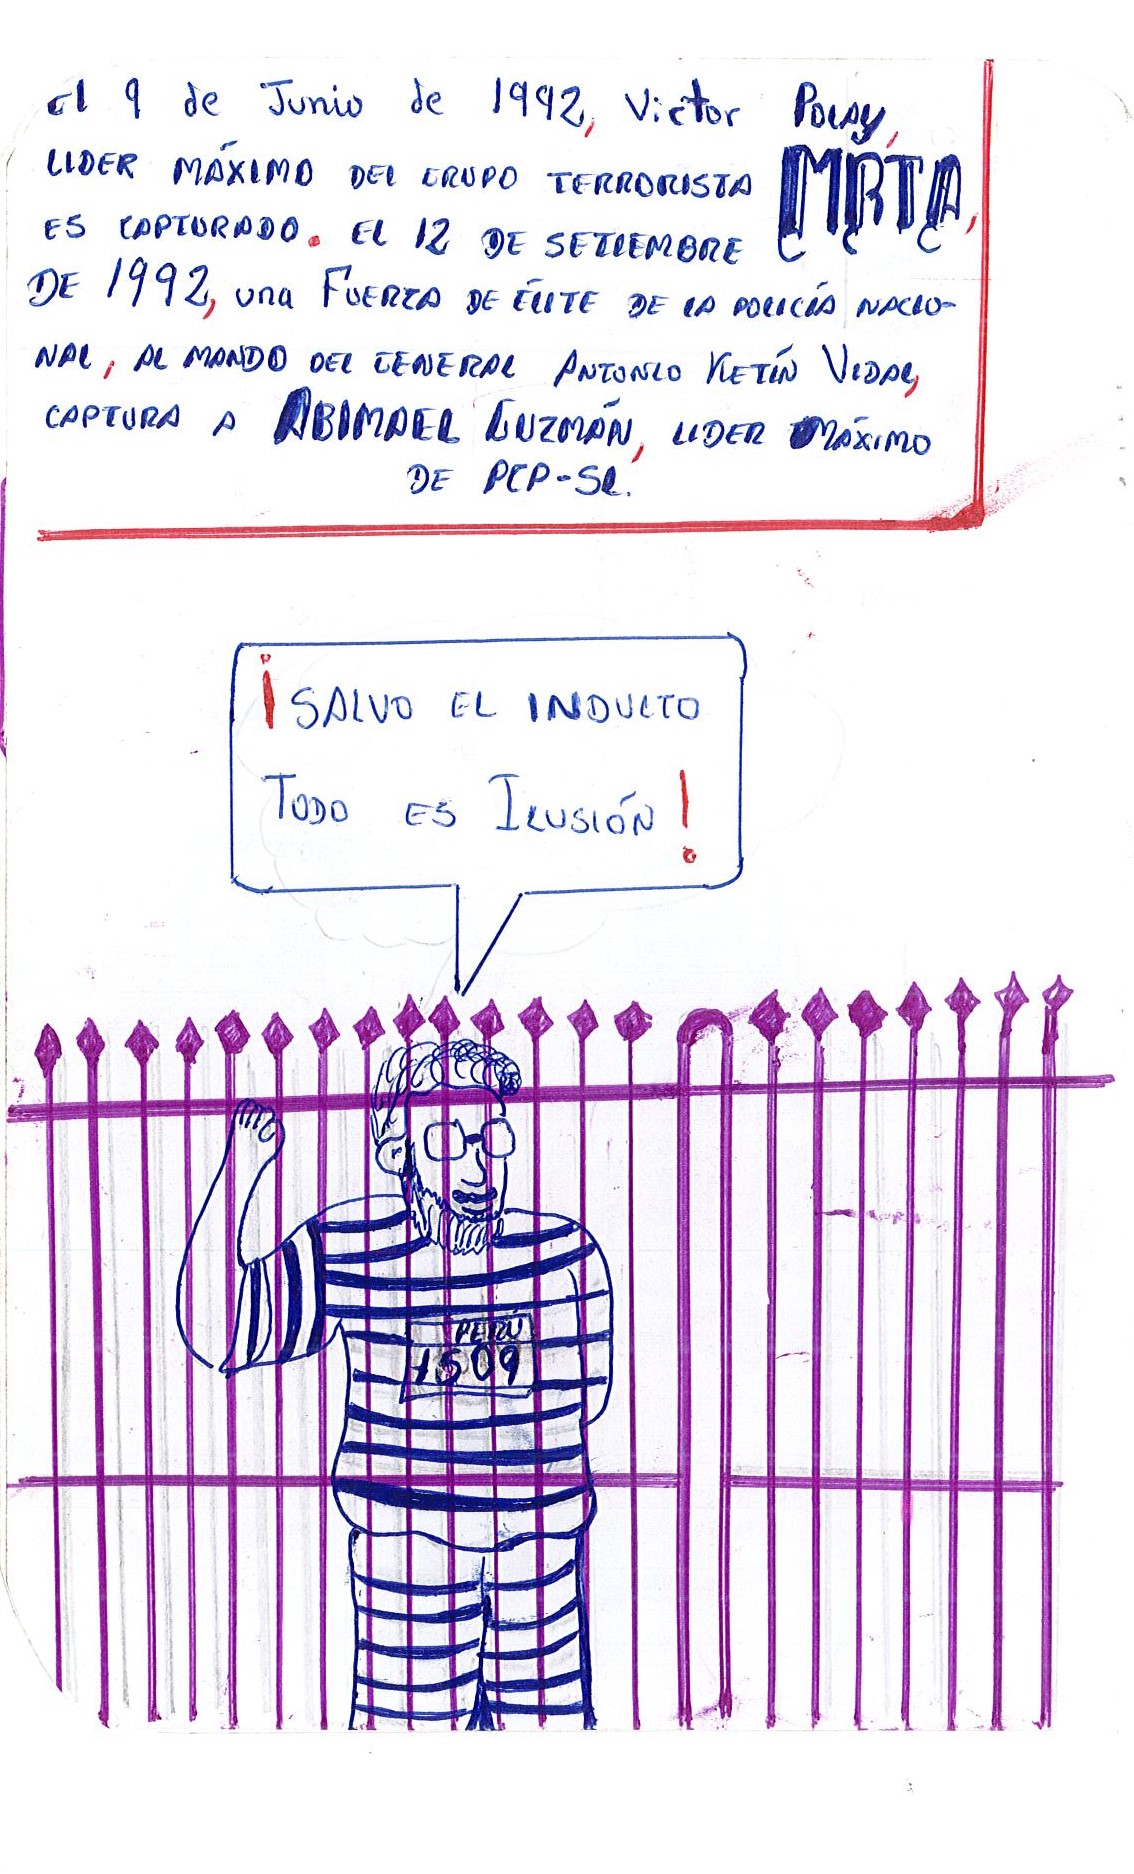 El 9 de Junio de 1992, Victor Polay,
LIDER MÁXIMO DEL GRUPO TERRORISTA MRTA,
ES CAPTURADO. EL 12 DE SETIEMBRE
DE 1992, una FUERZA DE ÉLITE DE LA POLICÍA NACIO-
NAL, AL MANDO DEL GENERAL ANTONIO KETÍN VIDAL,
CAPTURA A ABIMAEL GUZMÁN, LIDER MÁXIMO
DE PCP-SL.
¡SALVO EL INDULTO
TODO ES ILUSIÓN!
PERÚ
1509